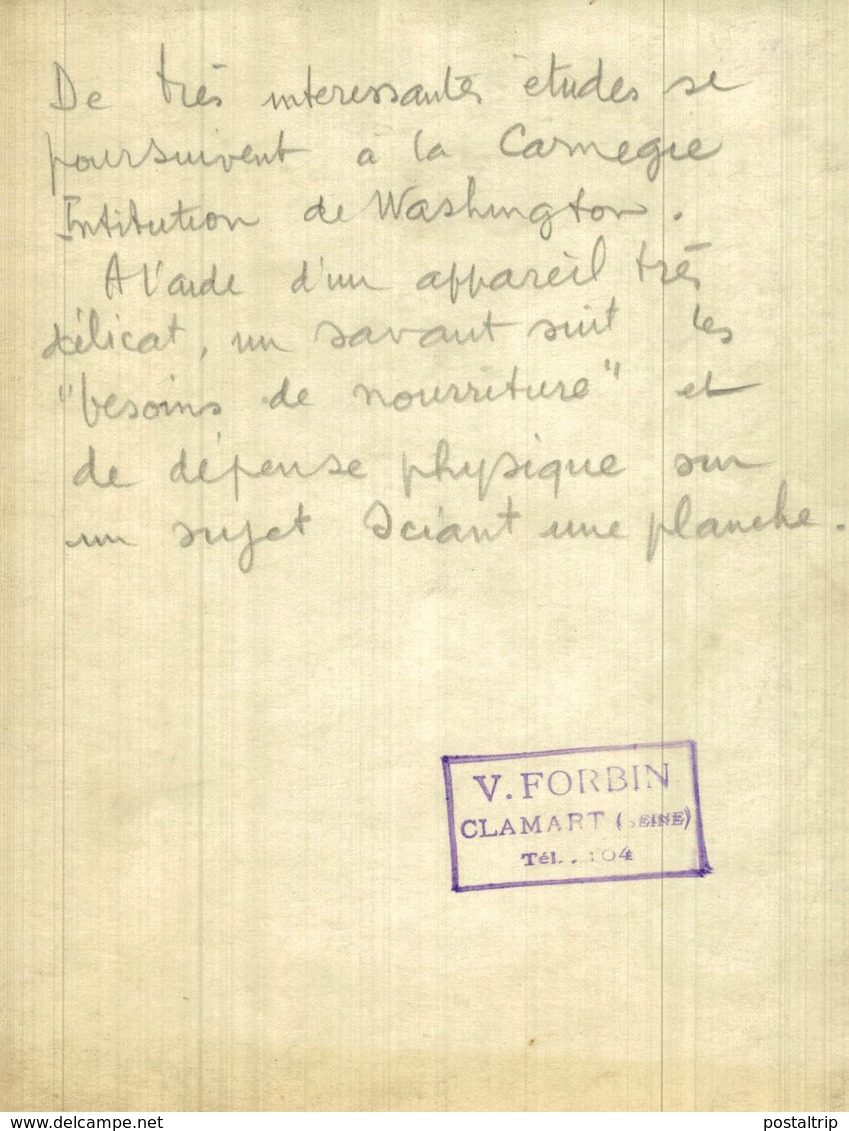 De très interessantes études se
poursuivent à la Carnegie
Intitution de Washington.
A l'aide d'un appareil très
délicat, un savant suit les
"besoins de nourriture" et
de dépense physique sur
un sujet sciant une planche.
V. FORBIN
CLAMART (SEINE)
Tél. 104
www.delcampe.net
postaltrip